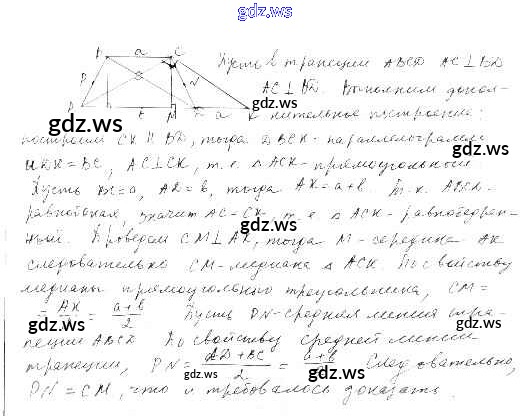 gdz.ws
B a C
Пусть в трапеции ABCD AC ⊥ BD
AC ⊥ BD. Выполним допол-
A M a K
нительное построение:
gdz.ws
gdz.ws
построим CK ∥ BD, тогда DBCK - параллелограмм
и DK = BC, AC ⊥ CK, т.е. △ ACK - прямоугольный
gdz.ws
Пусть BC = a, AD = b, тогда AK = a + b. Т.к. ABCD -
равнобокая, значит AC = CK, т.е. △ ACK - равнобедрен-
gdz.ws
gdz.ws
ный. Проведем CM ⊥ AK, тогда M - середина AK
следовательно CM - медиана △ ACK. По свойству
gdz.ws
медианы прямоугольного треугольника, CM =
= AK/2 = (a+b)/2 Пусть PN - средняя линия тра-
gdz.ws
gdz.ws
пеции ABCD По свойству средней линии
трапеции, PN = (AD+BC)/2 = (a+b)/2 Следовательно,
gdz.ws
gdz.ws
PN = CM, что и требовалось доказать.
gdz.ws